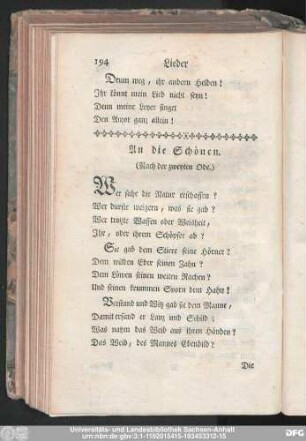 194 Lieder
Drum weg, ihr andern Helden!
Ihr könnt mein Lied nicht seyn!
Denn meine Leyer singet
Den Amor ganz allein!
An die Schönen.
(Nach der zweyten Ode.)
Wer sahe die Natur erschaffen?
Wer durfte weigern, was sie gab?
Wer trotzte Waffen oder Weisheit,
Ihr, oder ihrem Schöpfer ab?
Sie gab dem Stiere seine Hörner?
Dem wilden Eber seinen Zahn?
Dem Löwen seinen weiten Rachen?
Und seinen krummen Sporn dem Hahn!
Verstand und Witz gab sie dem Manne,
Damit erfand er Lanz und Schild;
Was nahm das Weib aus ihren Händen?
Das Weib, des Mannes Ebenbild?
Die
Universitäts- und Landesbibliothek Sachsen-Anhalt
urn:nbn:de:gbv:3:1-1192015415-193453312-15
DFG